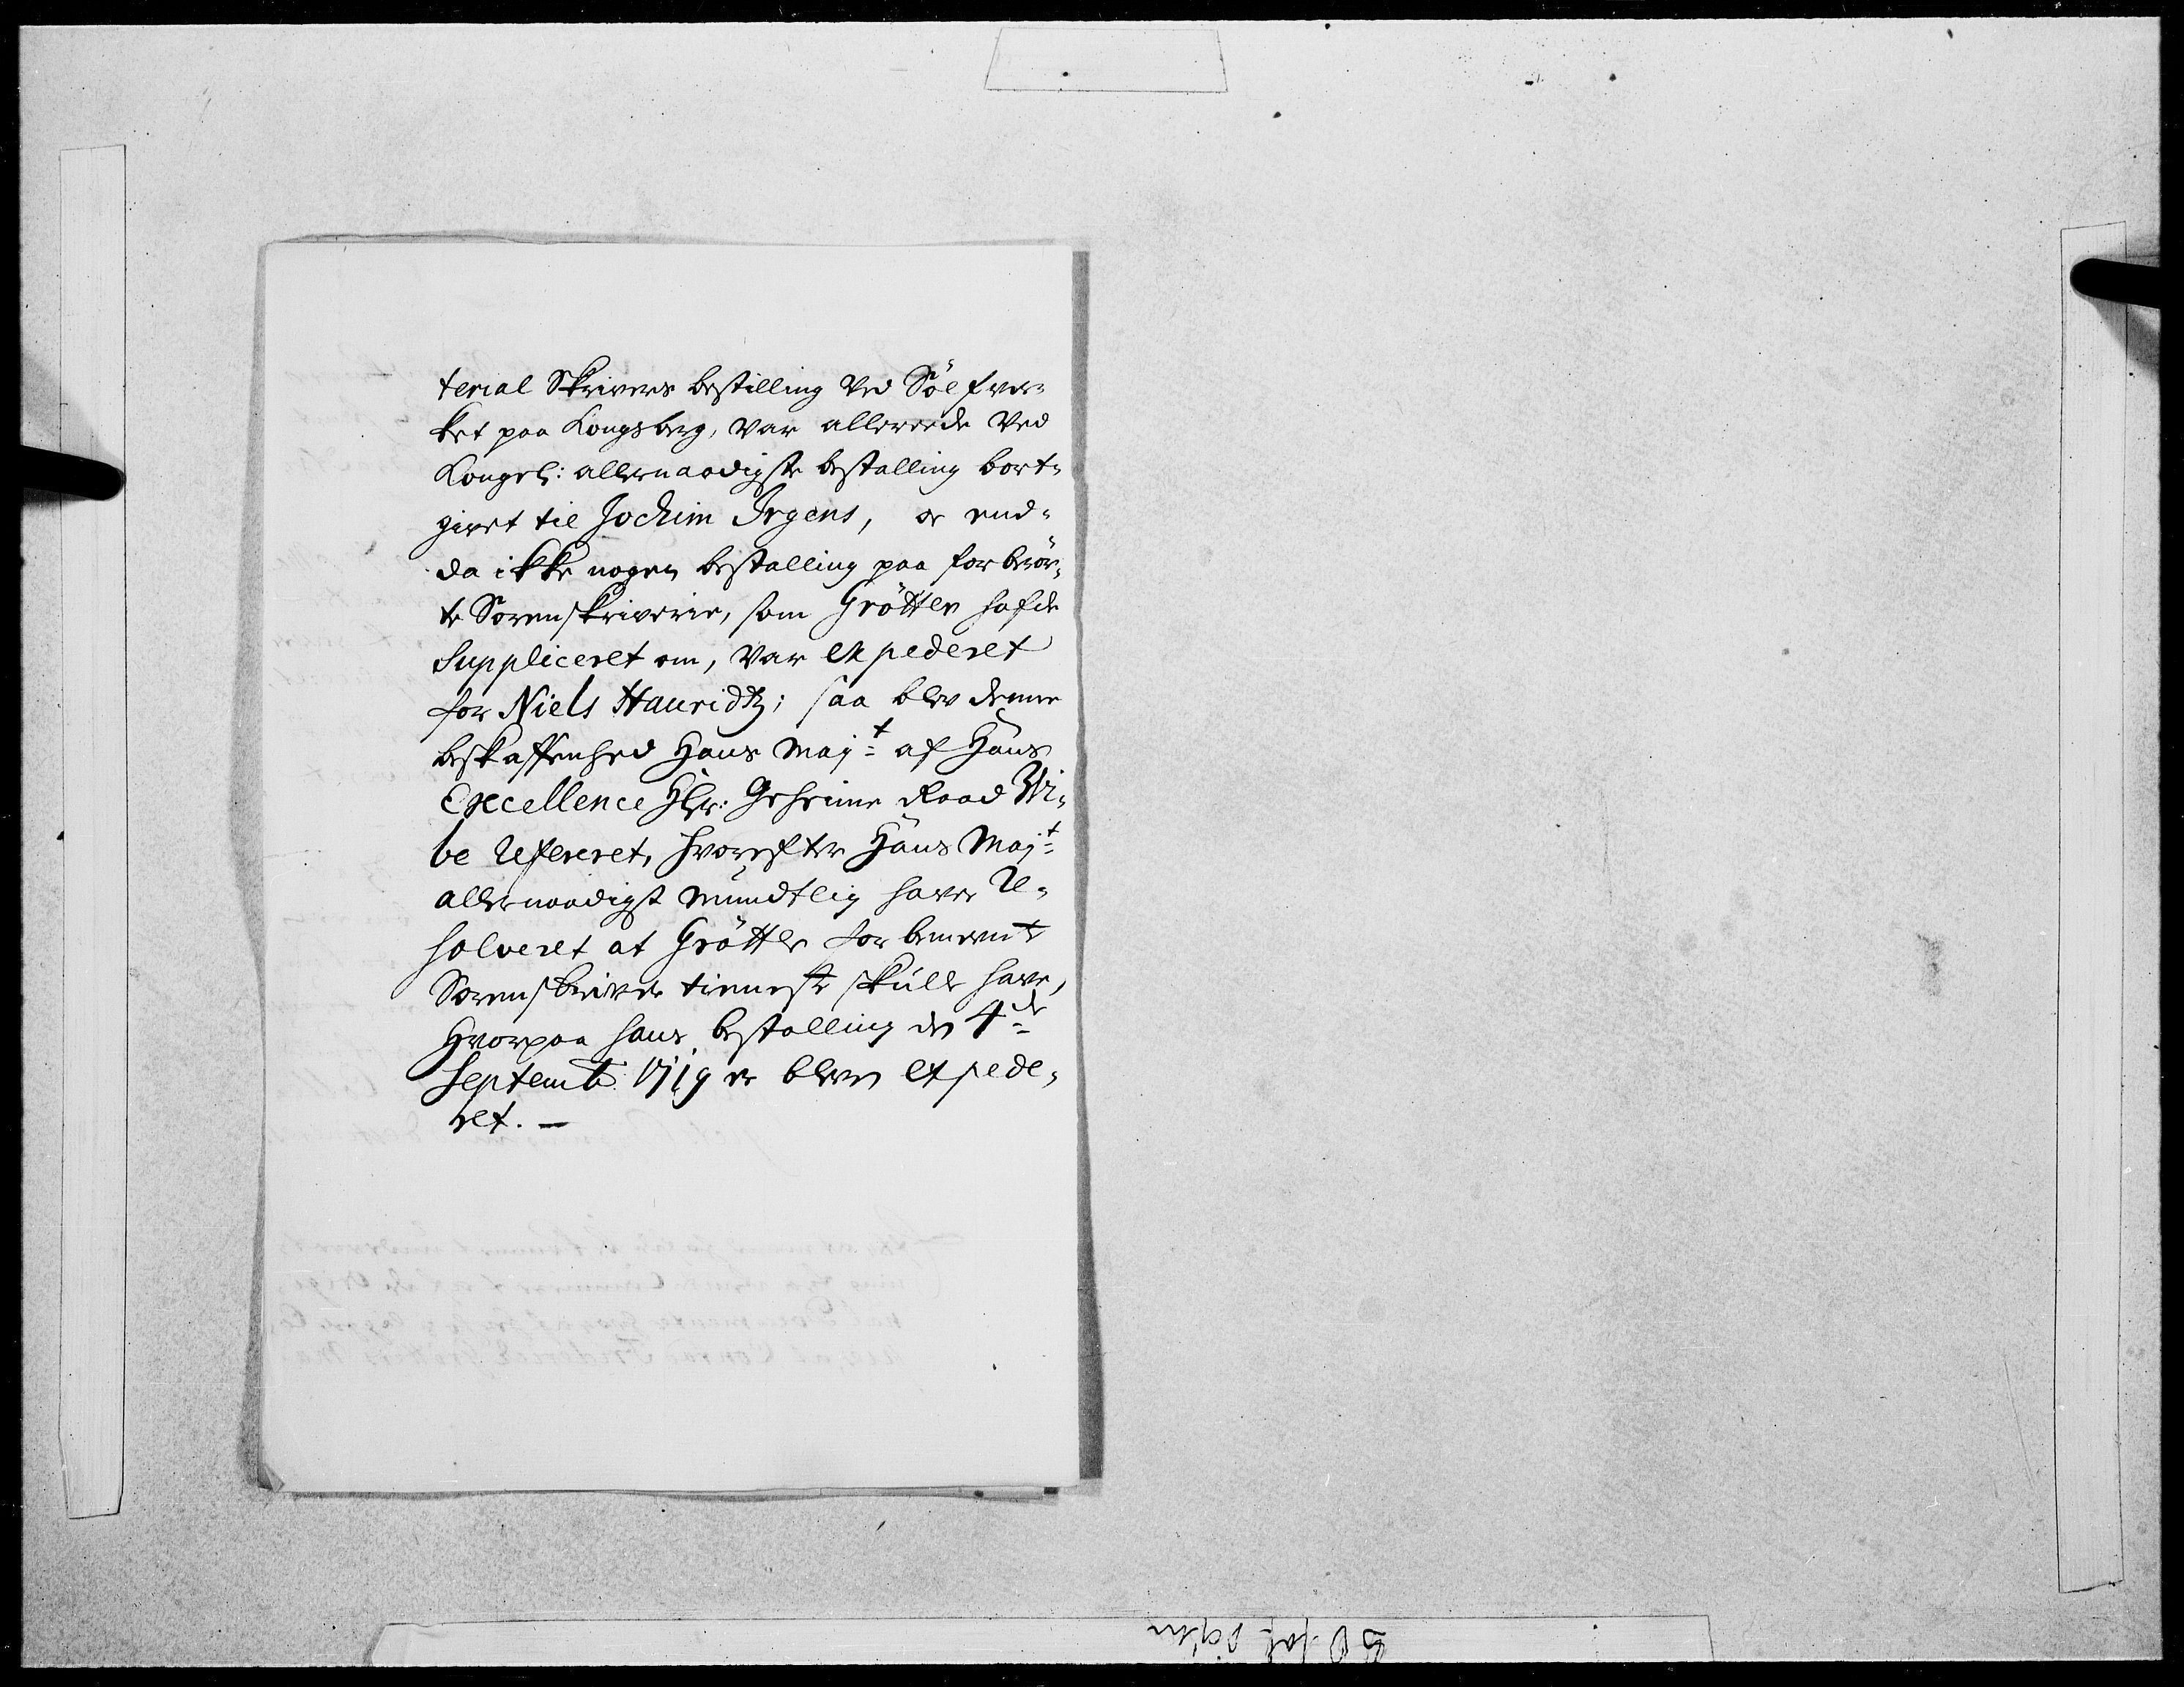 terial Skrivers bestilling ved Sölfver-
ket paa Kongsberg, var allereede ved
Kongel: allernaadigste bestalling bort-
givet til Jochim Irgens, og end-
da ikke nogen bestalling paa forberör-
te Sorenskriverie, som Grötter hafde
Suppliceret om, var expederet
for Niels Hauridtz; saa blev denne
beskaffenhed Hans Mayt af Hans
Excellence Hr: Geheime Raad Wi-
be Refereret, hvorefter Hans Mayt
allernaadigst mundtlig haver Re-
solveret at Grötter forbemente
Sorenskriver tieneste skulle have,
Hvorpaa hans bestalling den 4de
Septemb: 1719 er bleven expede-
ret. -